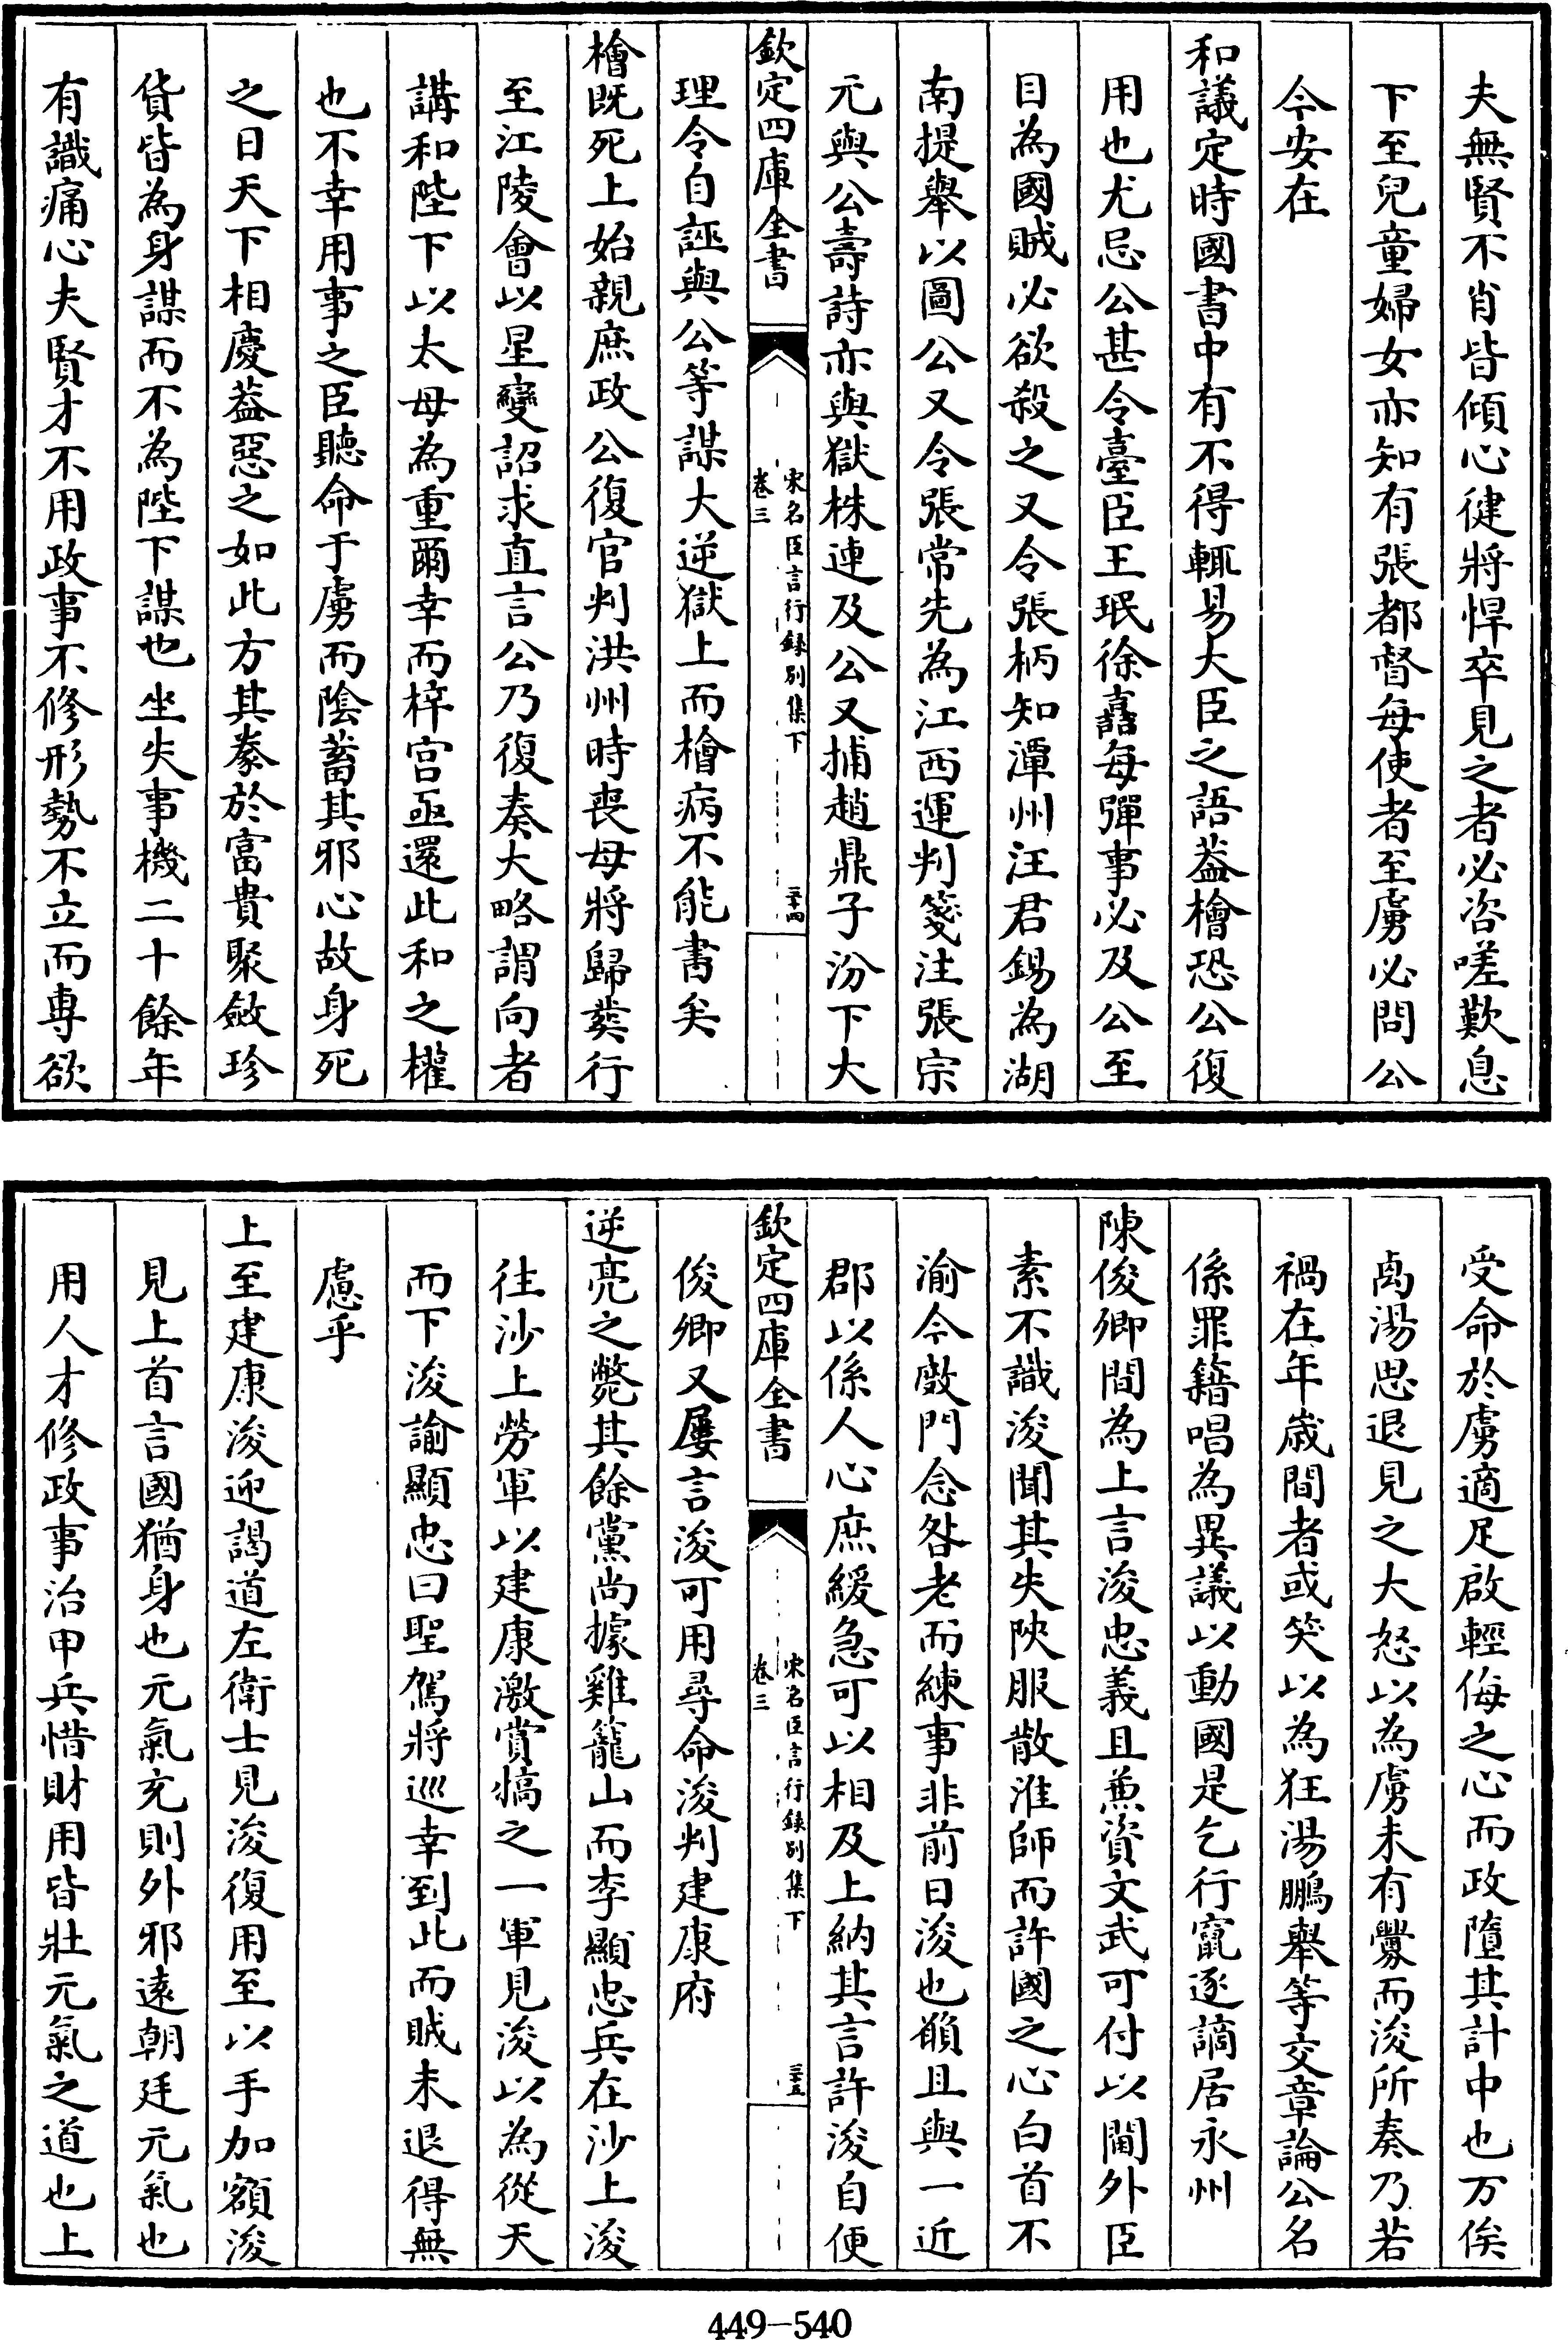 夫無賢不肖皆傾心健將悍卒見之者必咨嗟歎息
下至兒童婦女亦知有張都督每使者至虜必問公
今安在
和議定時國書中有不得輒易大臣之語葢檜恐公復
用也尤忌公甚令臺臣王珉徐嚞每彈事必及公至
目為國賊必欲殺之又令張柄知潭州汪君錫為湖
南提舉以圖公又令張常先為江西運判箋注張宗
元與公壽詩亦與獄株連及公又捕趙鼎子汾下大
欽定四庫全書
宋名臣言行録别集下
卷三
三十四
理令自誣與公等謀大逆獄上而檜病不能書矣
檜既死上始親庶政公復官判洪州時喪母將歸葬行
至江陵會以星變詔求直言公乃復奏大略謂向者
講和陛下以太母為重爾幸而梓宫亟還此和之權
也不幸用事之臣聽命于虜而陰蓄其邪心故身死
之日天下相慶葢惡之如此方其豢於富貴聚斂珍
貨皆為身謀而不為陛下謀也坐失事機二十餘年
有識痛心夫賢才不用政事不修形勢不立而専欲
受命於虜適足啟輕侮之心而政墮其計中也万俟
卨湯思退見之大怒以為虜未有釁而浚所奏乃若
禍在年歲間者或笑以為狂湯鵬舉等交章論公名
係罪籍唱為異議以動國是乞行竄逐謫居永州
陳俊卿間為上言浚忠義且兼資文武可付以閫外臣
素不識浚聞其失陝服散淮師而許國之心白首不
渝今殺門念咎老而練事非前日浚也願且與一近
郡以係人心庶緩急可以相及上納其言許浚自便
欽定四庫全書
宋名臣言行録别集下
卷三
三十五
俊卿又屢言浚可用尋命浚判建康府
逆亮之斃其餘黨尚據雞籠山而李顯忠兵在沙上浚
往沙上勞軍以建康激賞犒之一軍見浚以為從天
而下浚諭顯忠曰聖駕將巡幸到此而賊未退得無
慮乎
上至建康浚迎謁道左衛士見浚復用至以手加額浚
見上首言國猶身也元氣充則外邪遠朝廷元氣也
用人才修政事治甲兵惜財用皆壯元氣之道也上
449-540